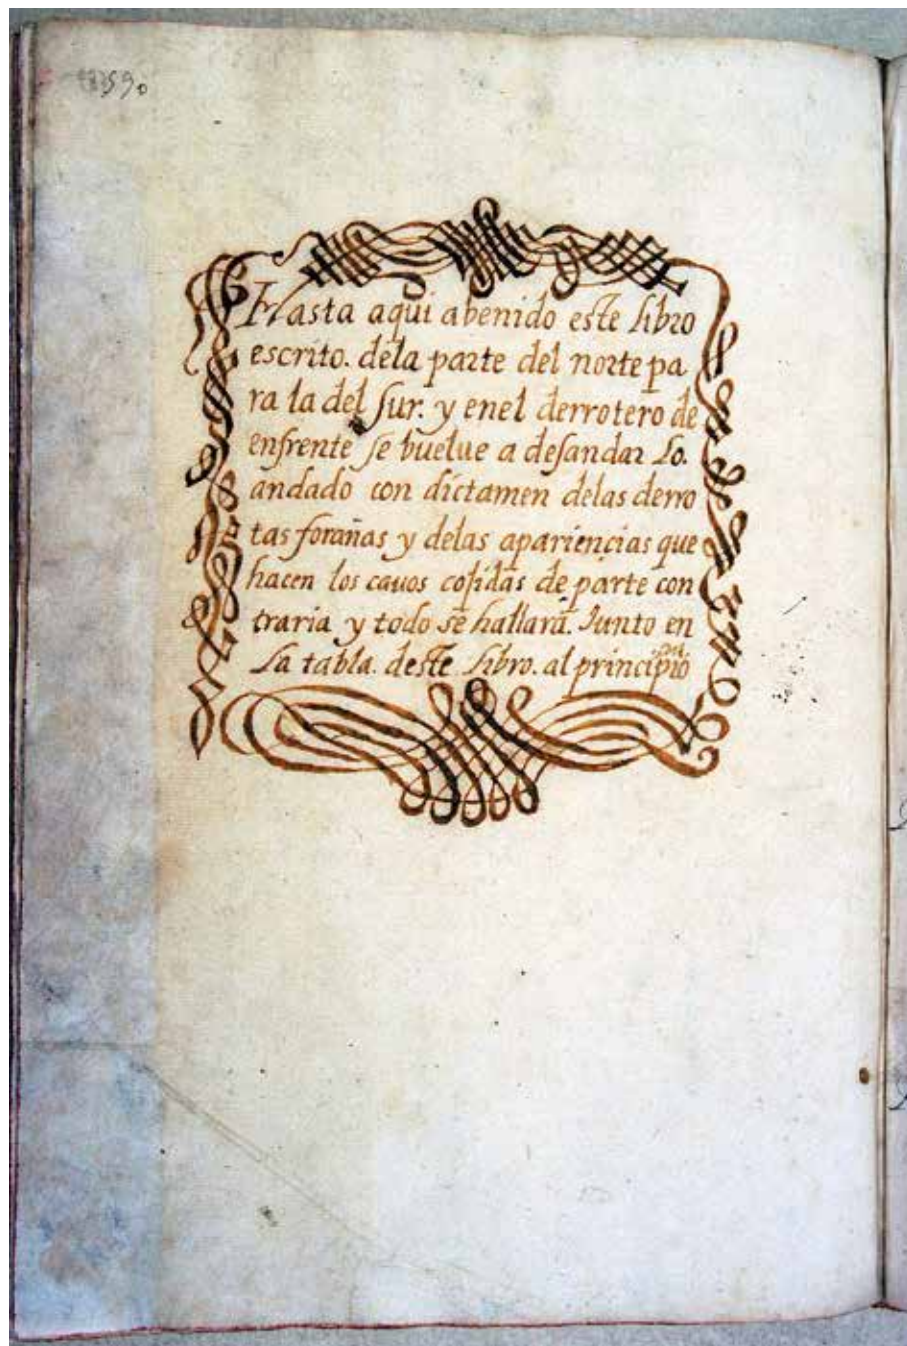 Hasta aqui abenido este libro
escrito. dela parte del norte pa
ra la del sur. y enel derrotero de
enfrente se buelue a desandar Lo.
andado con dictamen delas derro
tas forañas y delas apariencias que
hacen los cauos cosidas de parte con
traria y todo se hallarà. Junto en
La tabla. deste libro. al principio